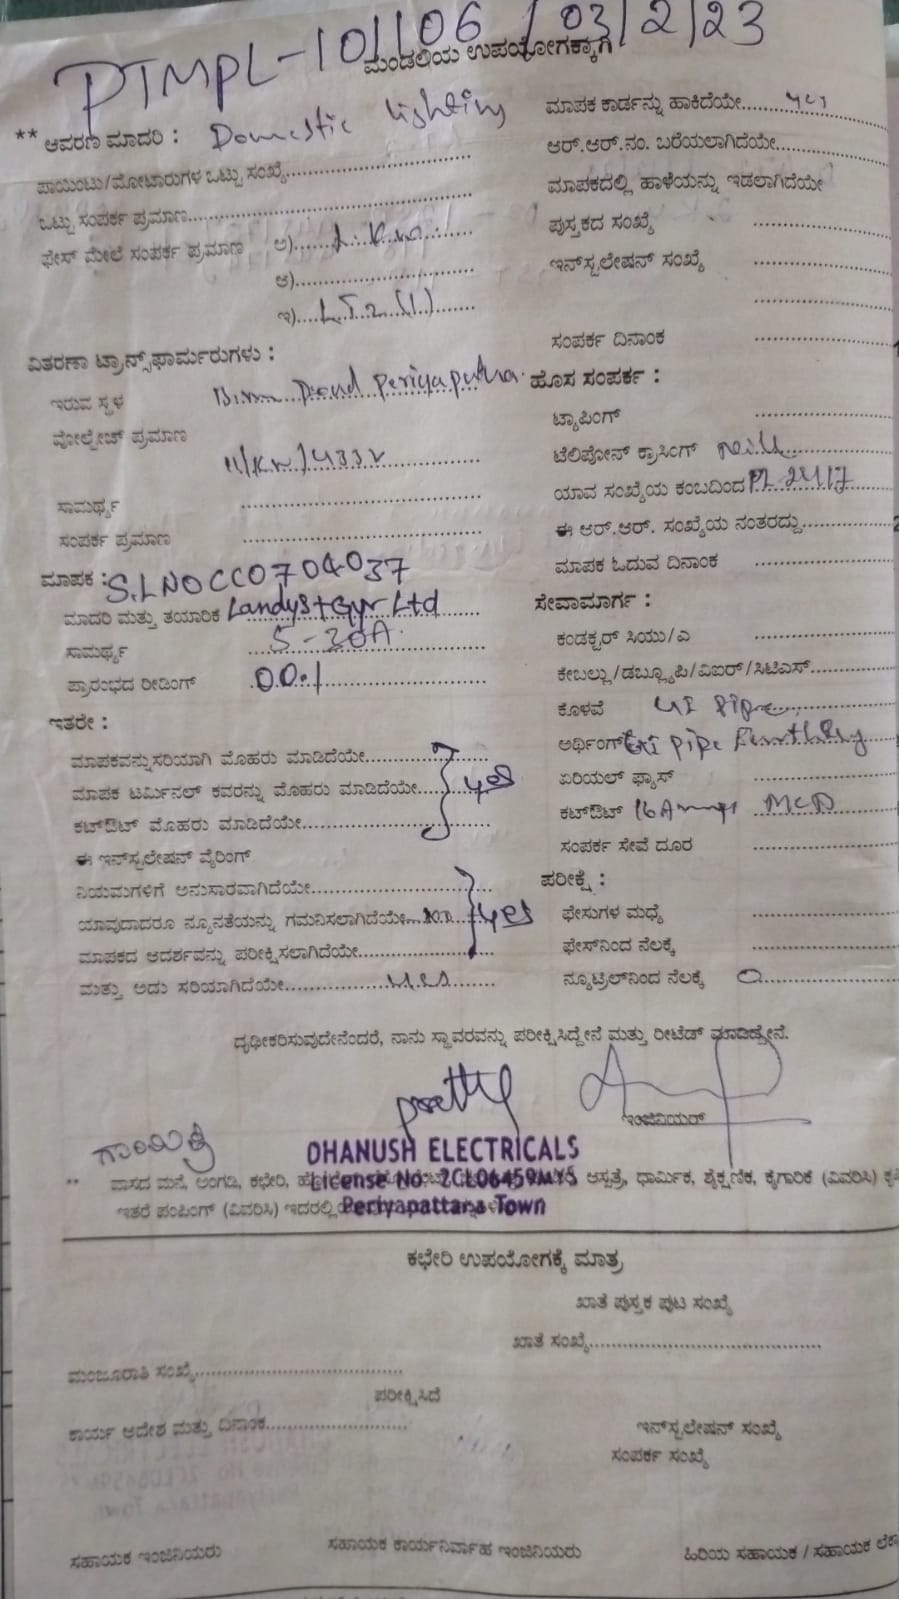 PTMPL-101106 / 03/2/23
ಮಂಡಲಿಯ ಉಪಯೋಗಕ್ಕಾಗಿ
** ಆವರಣ ಮಾದರಿ : Domestic lighting
ಪಾಯಿಂಟು/ಮೋಟಾರುಗಳ ಒಟ್ಟು ಸಂಖ್ಯೆ
ಒಟ್ಟು ಸಂಪರ್ಕ ಪ್ರಮಾಣ
ಫೇಸ್ ಮೇಲೆ ಸಂಪರ್ಕ ಪ್ರಮಾಣ ಅ)
ಆ)
ಇ)
ವಿತರಣಾ ಟ್ರಾನ್ಸ್‌ಫಾರ್ಮರುಗಳು :
ಇರುವ ಸ್ಥಳ
ವೋಲ್ಟೇಜ್ ಪ್ರಮಾಣ
11/KV/433V
ಸಾಮರ್ಥ್ಯ
ಸಂಪರ್ಕ ಪ್ರಮಾಣ
ಮಾಪಕ : S.LNOCC0704037
ಮಾದರಿ ಮತ್ತು ತಯಾರಿಕೆ Landys+Gyr Ltd
ಸಾಮರ್ಥ್ಯ 5-30A
ಪ್ರಾರಂಭದ ರೀಡಿಂಗ್ 00.1
ಇತರೇ :
ಮಾಪಕವನ್ನು ಸರಿಯಾಗಿ ಮೊಹರು ಮಾಡಿದೆಯೇ
ಮಾಪಕ ಟರ್ಮಿನಲ್ ಕವರನ್ನು ಮೊಹರು ಮಾಡಿದೆಯೇ yes
ಕಟ್‌ಔಟ್ ಮೊಹರು ಮಾಡಿದೆಯೇ
ಈ ಇನ್‌ಸ್ಟಲೇಷನ್ ವೈರಿಂಗ್
ನಿಯಮಗಳಿಗೆ ಅನುಸಾರವಾಗಿದೆಯೇ
ಯಾವುದಾದರೂ ನ್ಯೂನತೆಯನ್ನು ಗಮನಿಸಲಾಗಿದೆಯೇ no yes
ಮಾಪಕದ ಆದರ್ಶವನ್ನು ಪರೀಕ್ಷಿಸಲಾಗಿದೆಯೇ
ಮತ್ತು ಅದು ಸರಿಯಾಗಿದೆಯೇ yes
ಮಾಪಕ ಕಾರ್ಡನ್ನು ಹಾಕಿದೆಯೇ yes
ಆರ್.ಆರ್.ನಂ. ಬರೆಯಲಾಗಿದೆಯೇ
ಮಾಪಕದಲ್ಲಿ ಹಾಳೆಯನ್ನು ಇಡಲಾಗಿದೆಯೇ
ಪುಸ್ತಕದ ಸಂಖ್ಯೆ
ಇನ್‌ಸ್ಟಲೇಷನ್ ಸಂಖ್ಯೆ
ಸಂಪರ್ಕ ದಿನಾಂಕ
ಹೊಸ ಸಂಪರ್ಕ :
ಟ್ಯಾಪಿಂಗ್
ಟೆಲಿಪೋನ್ ಕ್ರಾಸಿಂಗ್
ಯಾವ ಸಂಖ್ಯೆಯ ಕಂಬದಿಂದ PL 2417
ಈ ಆರ್.ಆರ್. ಸಂಖ್ಯೆಯ ನಂತರದ್ದು
ಮಾಪಕ ಓದುವ ದಿನಾಂಕ
ಸೇವಾಮಾರ್ಗ :
ಕಂಡಕ್ಟರ್ ಸಿಯು/ಎ
ಕೇಬಲ್ಲು/ಡಬ್ಲ್ಯೂಪಿ/ವಿಐಆರ್/ಸಿಟಿಎಸ್
ಕೊಳವೆ GI pipe
ಅರ್ಥಿಂಗ್ GI pipe Earthing
ಏರಿಯಲ್ ಫ್ಯೂಸ್
ಕಟ್‌ಔಟ್ 16Amps MCB
ಸಂಪರ್ಕ ಸೇವೆ ದೂರ
ಪರೀಕ್ಷೆ :
ಫೇಸುಗಳ ಮಧ್ಯೆ
ಫೇಸ್‌ನಿಂದ ನೆಲಕ್ಕೆ
ನ್ಯೂಟ್ರಲ್‌ನಿಂದ ನೆಲಕ್ಕೆ 0
ದೃಢೀಕರಿಸುವುದೇನೆಂದರೆ, ನಾನು ಸ್ಥಾವರವನ್ನು ಪರೀಕ್ಷಿಸಿದ್ದೇನೆ ಮತ್ತು ರೀಟೆಡ್ ಮಾಡಿದ್ದೇನೆ.
ಇಂಜಿನಿಯರ್
ಗಾಯಿತ್ರಿ
DHANUSH ELECTRICALS
License No. 2CL06459MYS
Periyapattana Town
** ವಾಸದ ಮನೆ, ಅಂಗಡಿ, ಕಛೇರಿ, ಆಸ್ಪತ್ರೆ, ಧಾರ್ಮಿಕ, ಶೈಕ್ಷಣಿಕ, ಕೈಗಾರಿಕೆ (ವಿವರಿಸಿ)
ಇತರೆ ಪಂಪಿಂಗ್ (ವಿವರಿಸಿ)
ಕಛೇರಿ ಉಪಯೋಗಕ್ಕೆ ಮಾತ್ರ
ಖಾತೆ ಪುಸ್ತಕ ಪುಟ ಸಂಖ್ಯೆ
ಖಾತೆ ಸಂಖ್ಯೆ
ಮಂಜೂರಾತಿ ಸಂಖ್ಯೆ
ಪರೀಕ್ಷಿಸಿದೆ
ಕಾರ್ಯ ಆದೇಶ ಮತ್ತು ದಿನಾಂಕ
ಇನ್‌ಸ್ಟಲೇಷನ್ ಸಂಖ್ಯೆ
ಸಂಪರ್ಕ ಸಂಖ್ಯೆ
ಸಹಾಯಕ ಇಂಜಿನಿಯರು ಸಹಾಯಕ ಕಾರ್ಯನಿರ್ವಾಹ ಇಂಜಿನಿಯರು ಹಿರಿಯ ಸಹಾಯಕ / ಸಹಾಯಕ